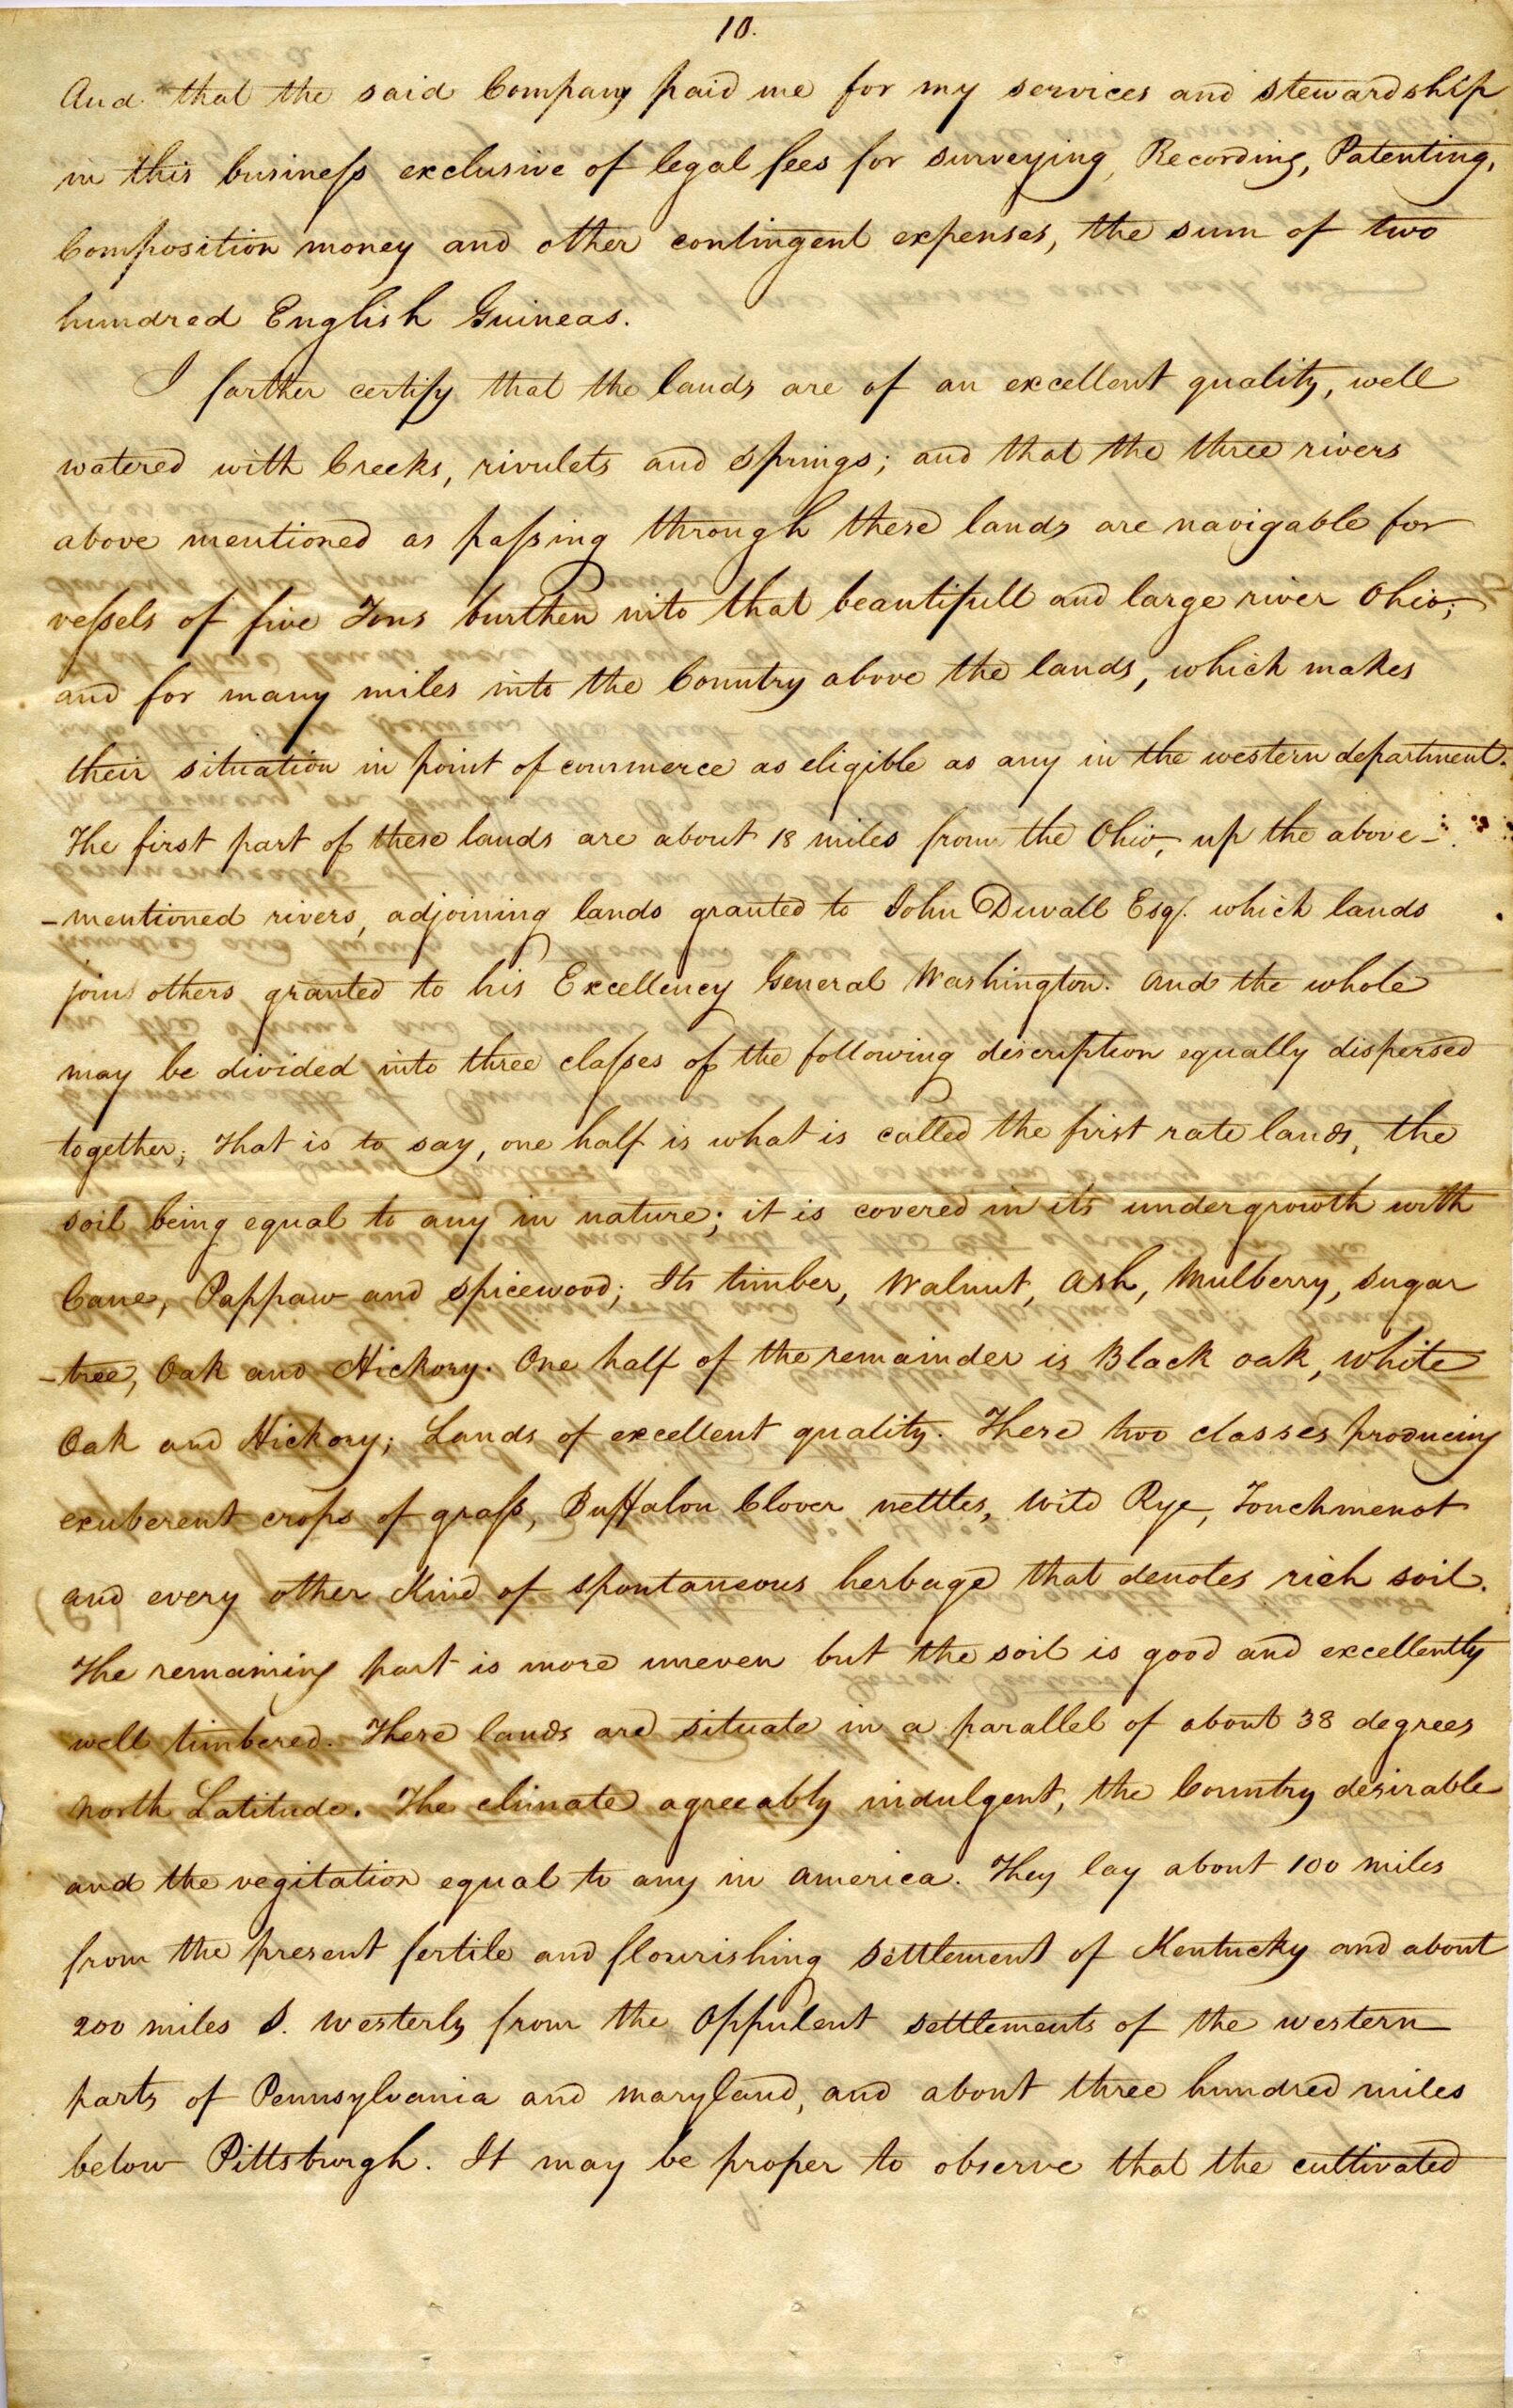 10.
And that the said Company paid me for my services and stewardship
in this business exclusive of legal fees for surveying, Recording, Patenting,
Composition money and other contingent expenses, the sum of two
hundred English Guineas.
I farther certify that the lands are of an excellent quality, well
watered with Creeks, rivulets and Springs; and that the three rivers
above mentioned as passing through these lands are navigable for
vessels of five Tons burthen into that beautifull and large river Ohio;
and for many miles into the Country above the lands, which makes
their situation in point of commerce as eligible as any in the western department.
The first part of these lands are about 18 miles from the Ohio, up the above-
-mentioned rivers, adjoining lands granted to John Duvall Esq. which lands
join others granted to his Excellency General Washington. And the whole
may be divided into three classes of the following description equally dispersed
together; That is to say, one half is what is called the first rate lands, the
soil being equal to any in nature; it is covered in its undergrowth with
Cane, Pappaw and spicewood; Its timber, Walnut, Ash, Mulberry, sugar
-tree, Oak and Hickory. One half of the remainder is Black oak, white
Oak and Hickory; Lands of excellent quality. These two classes producing
exuberent crops of grass, Buffalou Clover nettles, Wild Rye, Touchmenot
and every other Kind of spontaneous herbage that denotes rich soil.
The remaining part is more uneven but the soil is good and excellently
well timbered. These lands are situate in a parallel of about 38 degrees
North Latitude. The climate agreeably indulgent, the Country desirable
and the vegitation equal to any in America. They lay about 100 miles
from the present fertile and flourishing settlement of Kentucky and about
200 miles S. Westerly from the Oppulent settlements of the western
parts of Pennsylvania and Maryland, and about three hundred miles
below Pittsburgh. It may be proper to observe that the cultivated